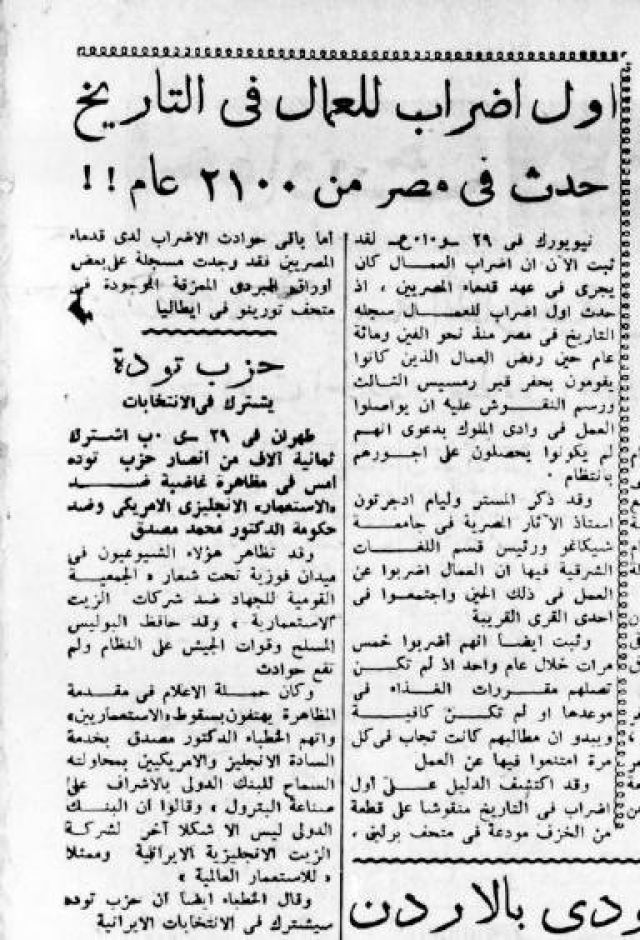 اول اضراب للعمال فى التاريخ
حدث فى مصر من ٢١٠٠ عام !!
نيويورك فى ٢٩ ـ و٠ا٠ع ـ لقد
ثبت الآن ان اضراب العمـــال كان
يجرى فى عهد قدماء المصريين ، اذ
حدث اول اضراب للعمـــال سجله
التاريخ فى مصر منذ نحو الفين ومائة
عام حين رفض العمال الذين كانوا
يقومون بحفر قبر رمسيس الثالث
ورسم النقـــوش عليه ان يواصلوا
العمل فى وادى الملوك بدعوى انهم
لم يكونوا يحصلون على اجورهم
بانتظام ٠
وقد ذكر المستر وليام ادجرتون
استاذ الآثار المصرية فى جامعـــة
شيكاغو ورئيس قسم اللغـــات
الشرقية فيها ان العمال اضربوا عن
العمل فى ذلك الحين واجتمعوا فى
احدى القرى القريبة
وثبت ايضا انهم أضربوا خمس
مرات خلال عام واحد اذ لم تكـــن
تصلهم مقـــررات الغـــذاء فى
موعدها او لم تكـــن كافيـــة
ويبدو ان مطالبهم كانت تجاب فى كل
مرة امتنعوا فيها عن العمل
وقد اكتشف الدليل عـــلى أول
اضراب فى التاريخ منقوشا على قطعة
من الخزف مودعة فى متحف برلين ،
أما باقى حوادث الاضراب لدى قدماء
المصريين فقد وجدت مسجلة على بعض
اوراق البردى الممزقة الموجودة فى
متحف تورينو فى ايطاليا
حزب تودة
يشترك فى الانتخابات
طهران فى ٢٩ ـ ى ٠ب اشترك
ثمانية آلاف من انصار حزب توده
امس فى مظاهرة غاضبة ضـــد
«الاستعمار» الانجليزى الامريكى وضد
حكومة الدكتور محمد مصدق
وقد تظاهر هؤلاء الشيوعيون فى
ميدان فوزية تحت شعار « الجمعية
القومية للجهاد ضد شركات الزيت
الاستعمارية » وقد حافظ البوليس
المسلح وقوات الجيش على النظام ولم
تقع حوادث
وكان حملـــة الاعلام فى مقدمة
المظاهرة يهتفون بسقوط «الاستعماريين»
واتهم الخطباء الدكتور مصدق بخدمة
السادة الانجليز والامريكيين بمحاولته
السماح للبنك الدولى بالاشراف على
صناعة البترول » وقالوا ان البنـــك
الدولى ليس الا شكلا آخر لشركة
الزيت الانجليزية الايرانية وممثلا
« للاستعمار العالمية »
وقال الخطباء ايضا ان حزب توده
سيشترك فى الانتخابات الايرانية
ودى بالاردن